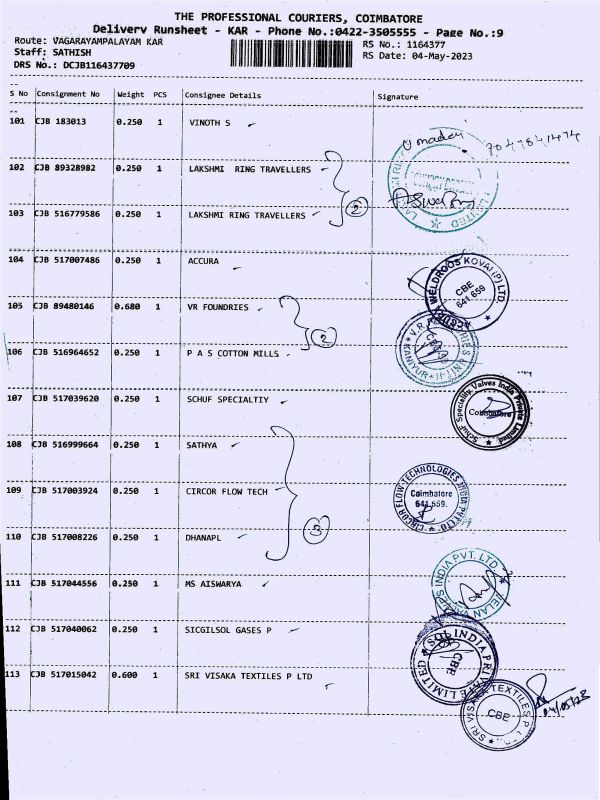 THE PROFESSIONAL COURIERS, COIMBATORE
Delivery Runsheet - KAR - Phone No.:0422-3505555 - Page No.:9
Route: VAGARAYAMPALAYAM KAR
RS No.: 1164377
Staff: SATHISH
RS Date: 04-May-2023
DRS No.: DCJB116437709
S No Consignment No Weight PCS Consignee Details Signature
101 CJB 183013 0.250 1 VINOTH S
Umadevi
102 CJB 89328982 0.250 1 LAKSHMI RING TRAVELLERS
2
103 CJB 516779586 0.250 1 LAKSHMI RING TRAVELLERS
104 CJB 517007486 0.250 1 ACCURA
WELDROOS KOVAI (P) LTD
CBE
641 659
105 CJB 89480146 0.680 1 VR FOUNDRIES
2
106 CJB 516964652 0.250 1 P A S COTTON MILLS
KANIYUR
107 CJB 517039620 0.250 1 SCHUF SPECIALTIY
Schuf Speciality Valves India Private Limited
Coimbatore
108 CJB 516999664 0.250 1 SATHYA
109 CJB 517003924 0.250 1 CIRCOR FLOW TECH
CIRCOR FLOW TECHNOLOGIES INDIA PVT LTD
Coimbatore
641 659.
110 CJB 517008226 0.250 1 DHANAPL
3
111 CJB 517044556 0.250 1 MS AISWARYA
INDIA PVT. LTD
112 CJB 517040062 0.250 1 SICGILSOL GASES P
SOL INDIA PRIVATE LIMITED
CBE
113 CJB 517015042 0.600 1 SRI VISAKA TEXTILES P LTD
SRI VISAKA TEXTILES P L
CBE
04/05/23